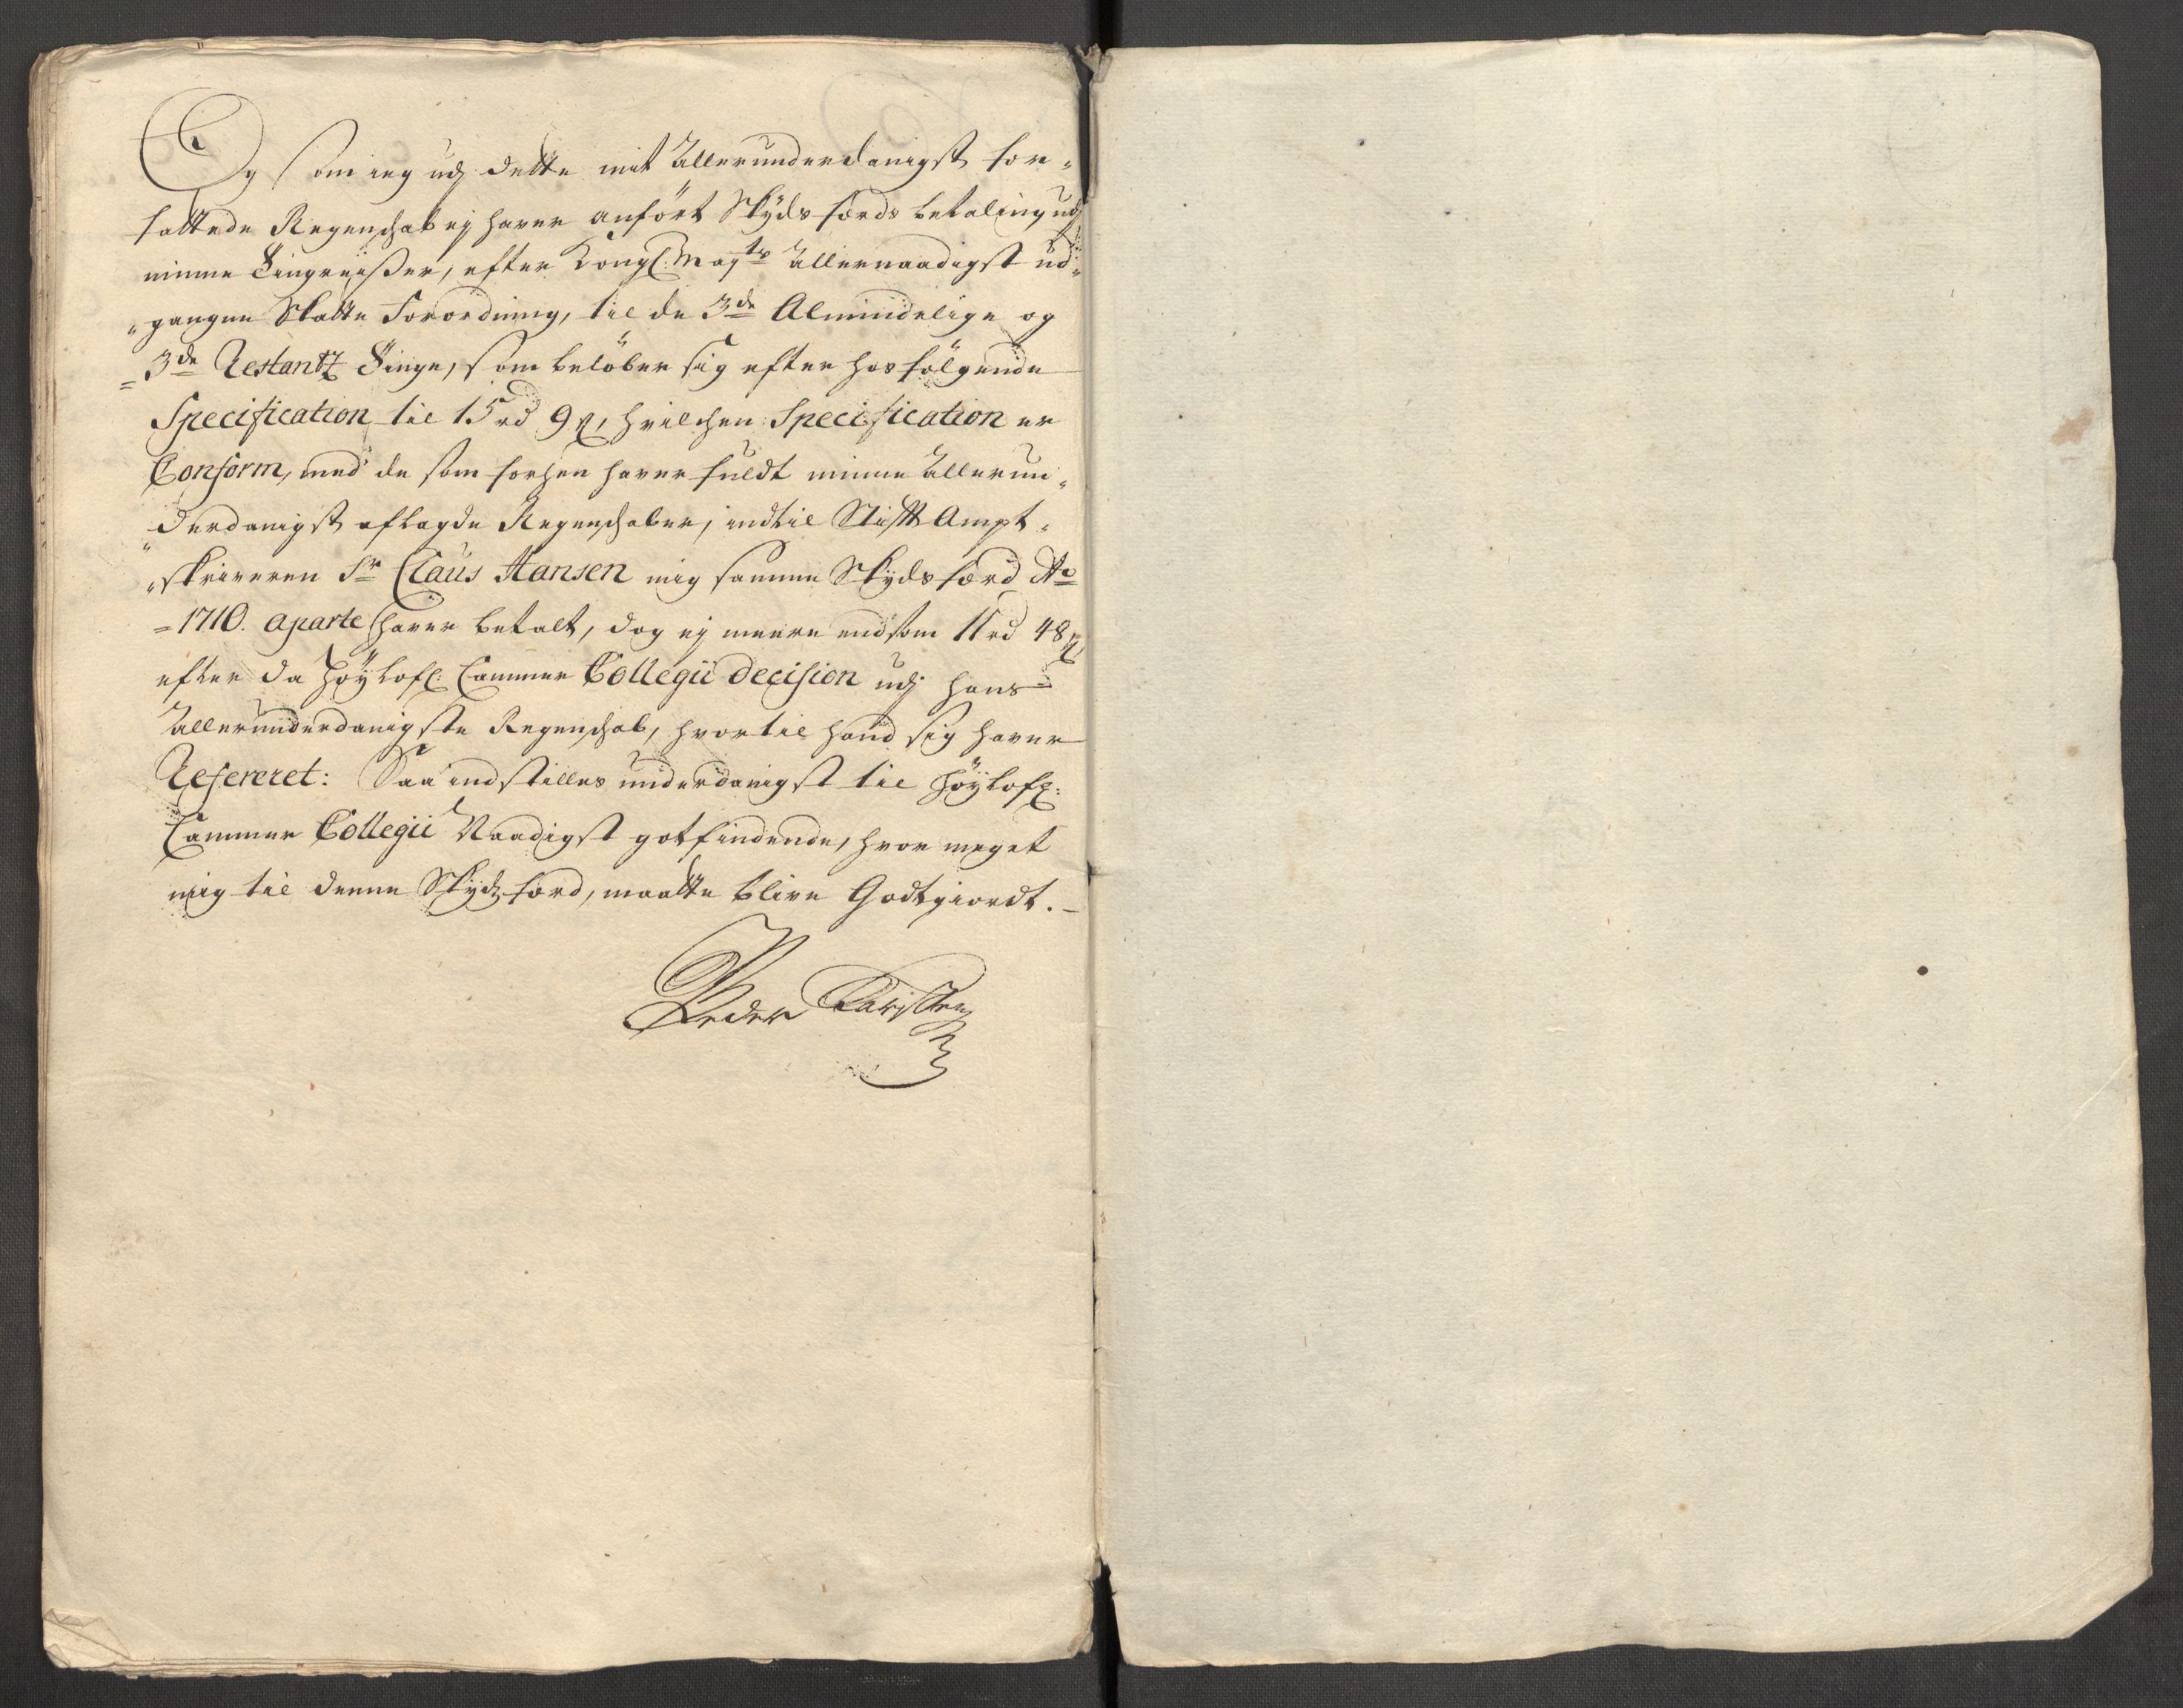 Og som ieg udj dette mit Allerunderdanigst for-
fattede Regenschab ej haver anfört Skyds færds betaling udj
minne Tingreisser, efter Kongl: Mayts Allernaadigst ud-
gangne Skatte Forordning, til de 3de Almindelige og
3de Restantz Tinge, som belöber sig efter hosfölgende
Specification til 15 rd 9 ß, hvilchen Specification er
Conform, med de som forhen haver fuldt minne Allerun-
derdanigst aflagde Regenschaber, indtil Stifft Ampt-
skriveren Sr Claus Hansen mig samme Skydsfærd Ao
1710. aparte haver betalt, dog ej meere end som 11 rd 48 ß
efter da Höylofl: Cammer Collegii Decision udj hans
Allerunderdanigste Regenschab, hvortil hand sig haver
Refereret: Saa indstilles underdanigst til Höylofl:
Cammer Collegii Naadigst gotfindende, hvor meget
mig til denne Skydtzfærd, maatte blive Godtgiordt.
Peder